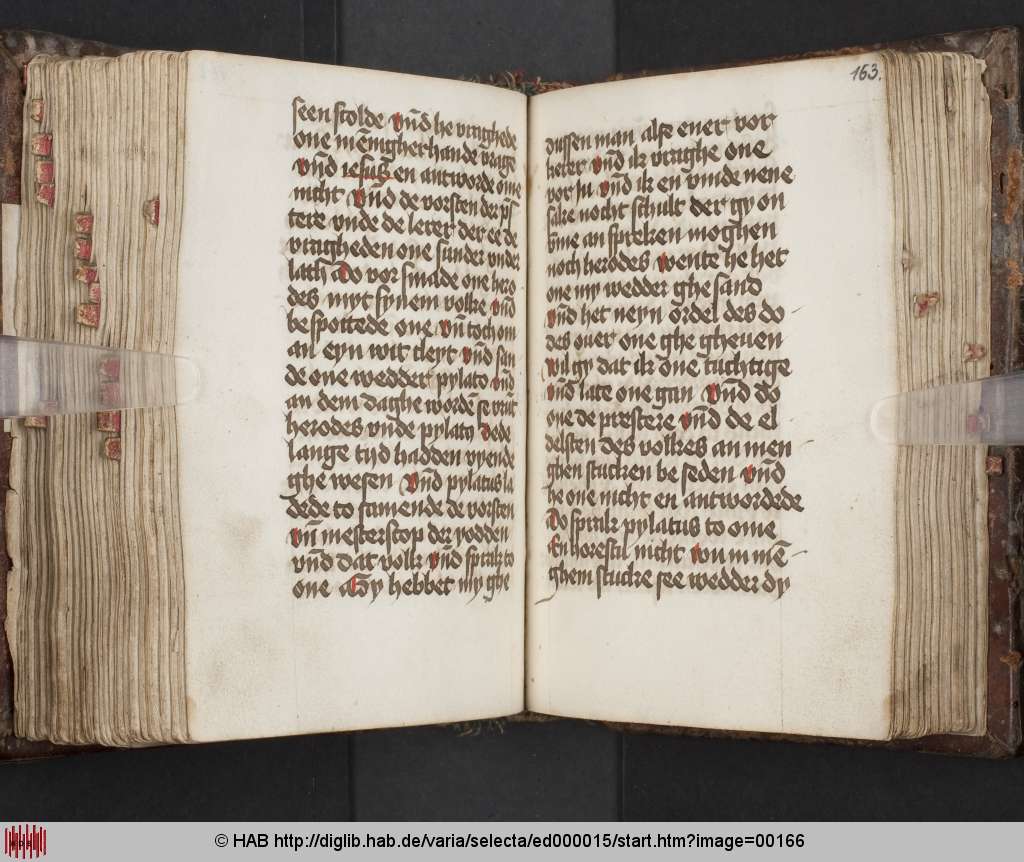 seen scolde vnd he vraghede
one mēnigherhande vrage
vnd iesus en antworde ome
nicht vnd de vorsten der
tere vnde de lerer der ee de
vragheden one sunder vnder
lath do vor smade one hero
des myt synem volke vnd
be spottede one vn toch om
an eyn wit cleyt vnd san
de one wedder pylato vnd
an dem daghe wordē se vrūt
herodes vnde pylatus dede
lange tyd hadden vyende
ghe wesen vnd pylatus la
dede to samende de vorsten
vn mesterscop der yodden
vnd dat volk vnd sprak to
one Gy hebbet my ghe
163.
dussen man alse ener vor
kerer vnd ik vraghe one
vor iu vnd ik en vinde nene
sake nocht schult der gy on
an spreken moghen
noch herodes wente he het
one my wedder ghe sand
vnd het neyn ordel des do
des ouer one ghe gheuen
wil gy dat ik one tuchtige
vnd late one gan vnd do
one de prestere vnd de el
delsten des volkes an men
ghen stucken be seden vnd
he one nicht en antwordede
do sprak pylatus to ome
En horestu nicht wu in mē
ghem stucke see wedder dy
© HAB http://diglib.hab.de/varia/selecta/ed000015/start.htm?image=00166